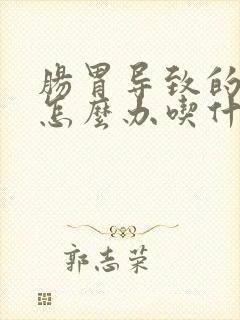 腸胃导致的
怎麽办喫什
郭志荣